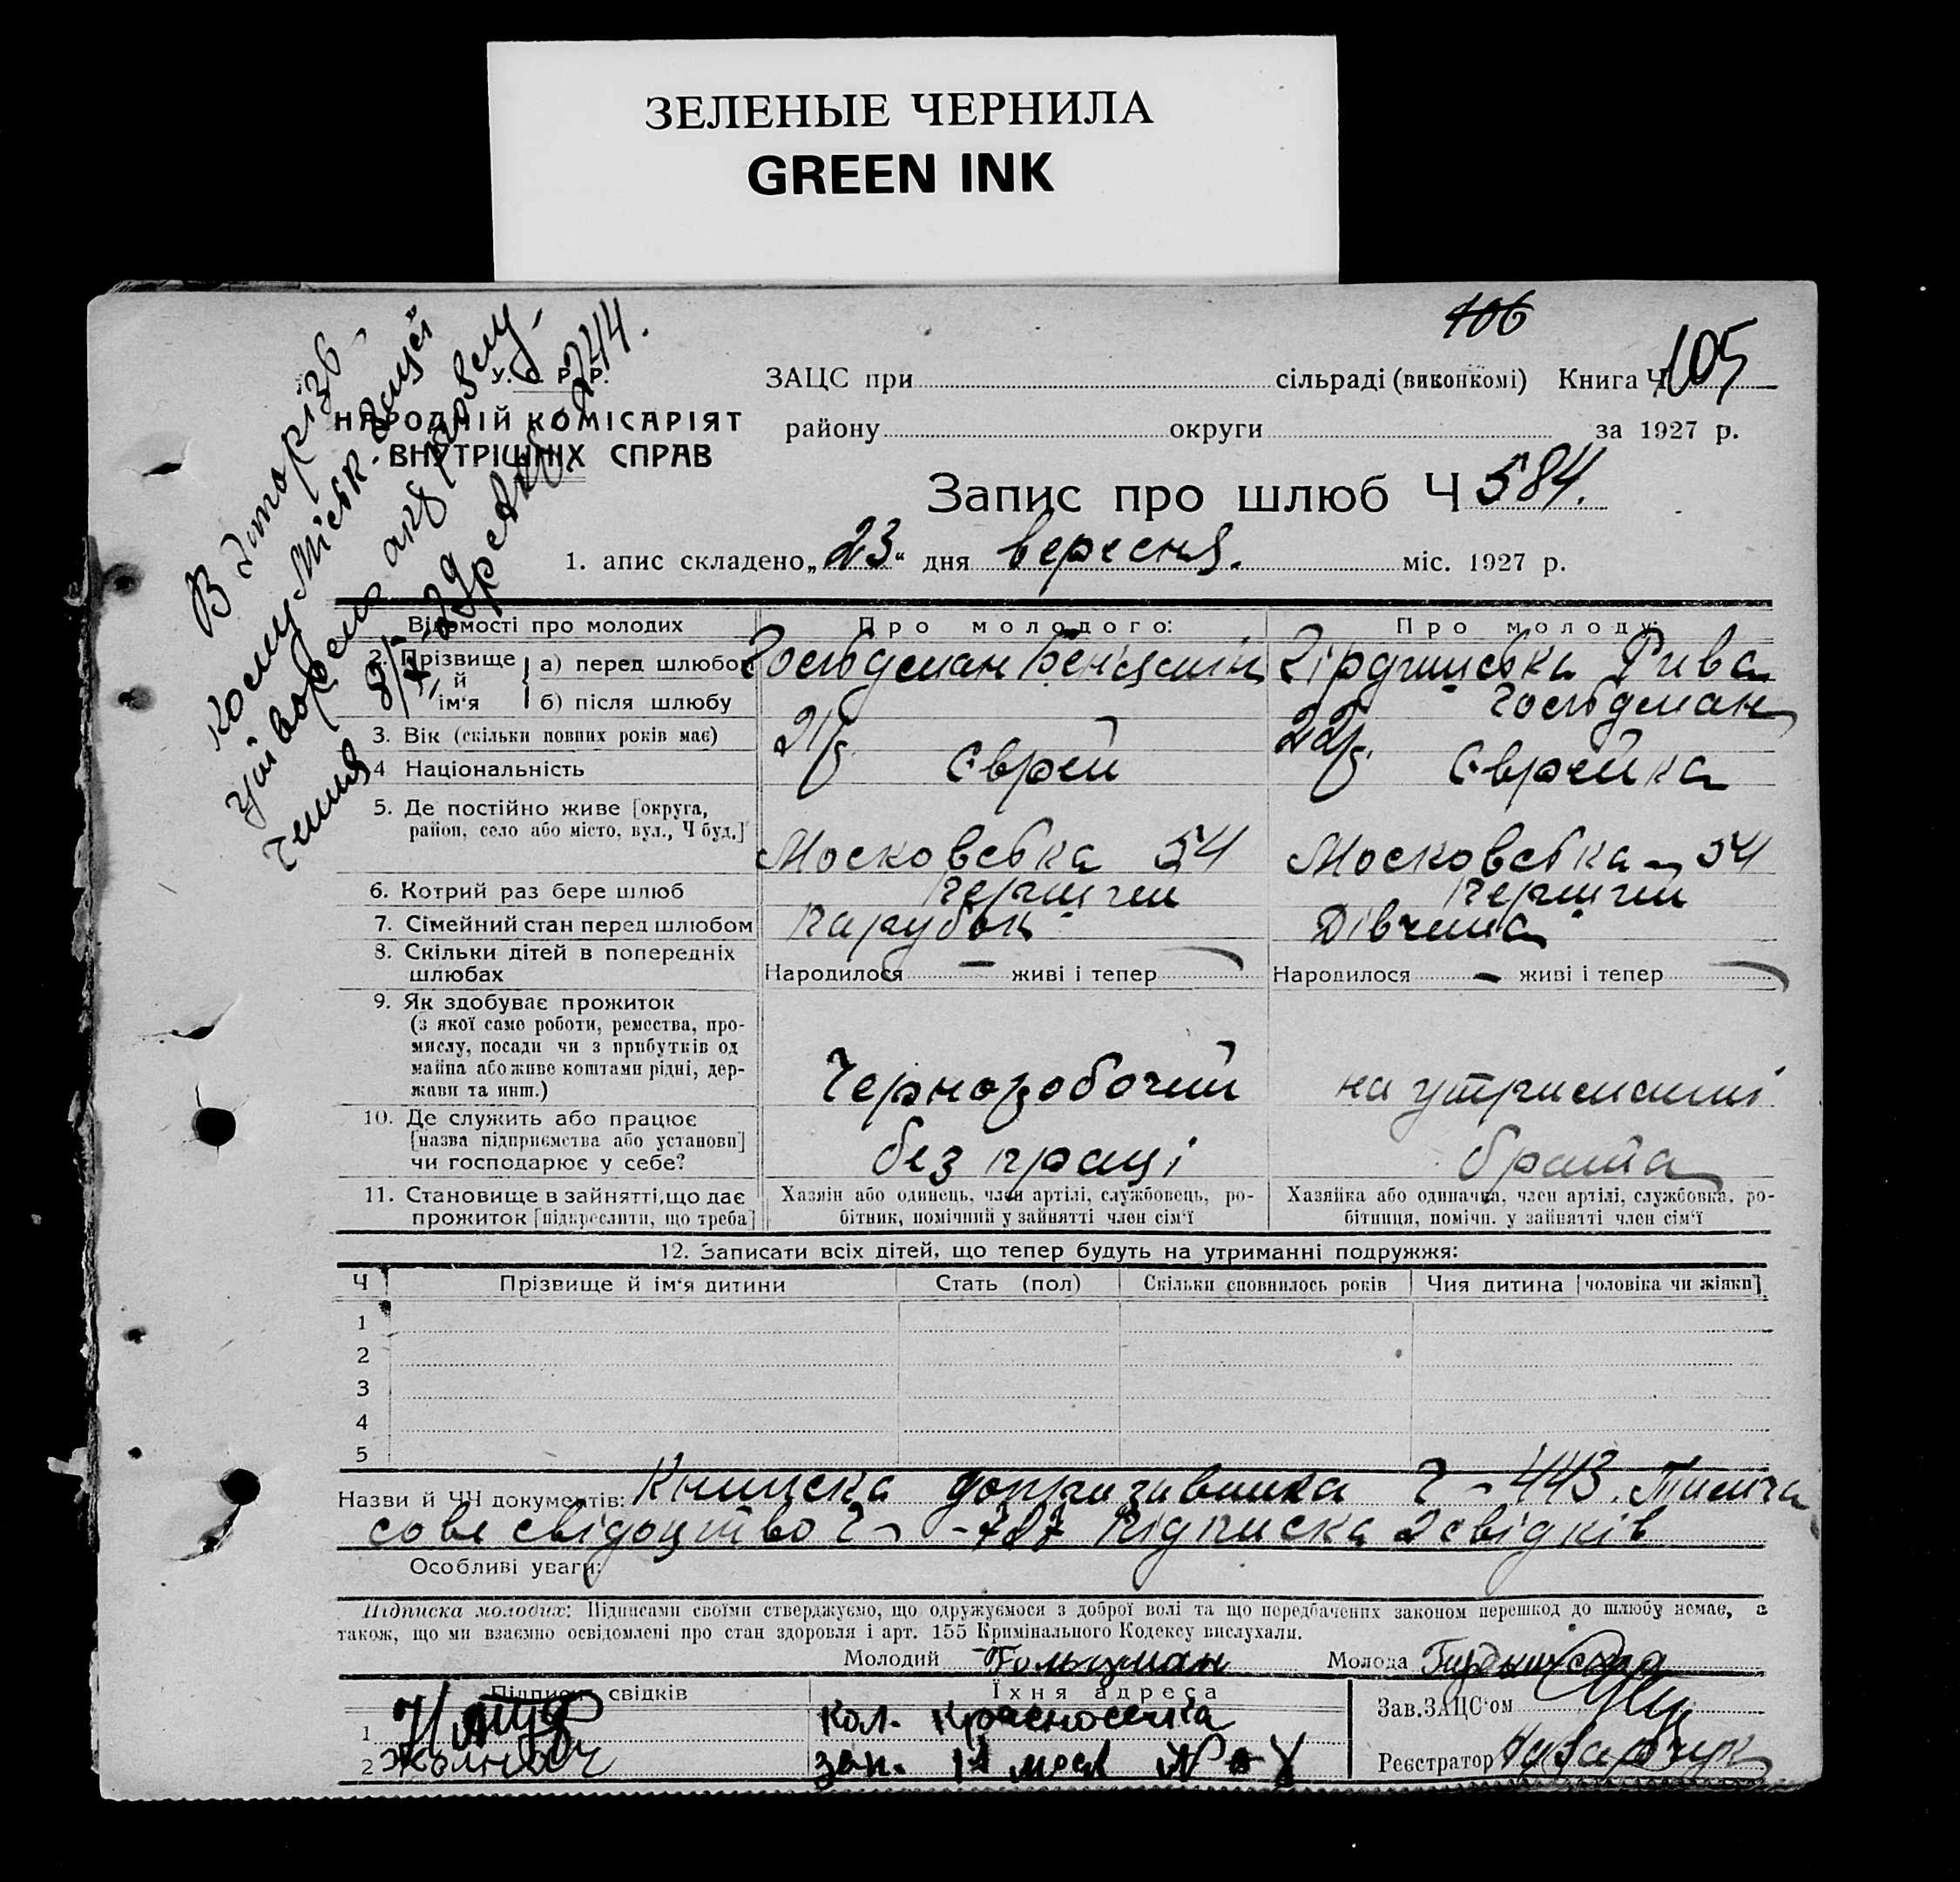 ЗЕЛЕНЫЕ ЧЕРНИЛА
GREEN INK
106
У. С. Р. Р.
НАРОДНІЙ КОМІСАРІЯТ
ВНУТРІШНІХ СПРАВ
ЗАЦС при сільраді (виконкомі) Книга Ч 105
району округи за 1927 р.
Запис про шлюб Ч 584.
1. апис складено „23“ дня вересня. міс. 1927 р.
Відомості про молодих Про молодого: Про молоду:
2. Прізвище й ім‘я а) перед шлюбом Гольдман Беніямін Гірдишевська Рива
б) після шлюбу Гольдман
3. Вік (скільки повних років має) 21р. 22р.
4 Національність Єврей Єврейка
5. Де постійно живе [округа,
район, село або місто, вул., Ч буд.]
Московська 54 Московська 54
6. Котрий раз бере шлюб перший перший
7. Сімейний стан перед шлюбом Парубок Дівчина
8. Скільки дітей в попередніх
шлюбах Народилося — живі і тепер Народилося — живі і тепер
9. Як здобуває прожиток
(з якої саме роботи, ремества, про-
мислу, посади чи з прибутків од
майна або живе коштами рідні, дер-
жави та инш.) Черноробочий на утриманні
10. Де служить або працює
[назва підприємства або установи]
чи господарює у себе? без праці брата
11. Становище в зайнятті, що дає Хазяїн або одинець, член артілі, службовець, ро- Хазяйка або одиначка, член артілі, службовка, ро-
прожиток [підкреслити, що треба] бітник, помічний у зайнятті член сім‘ї бітниця, помічн. у зайнятті член сім‘ї
12. Записати всіх дітей, що тепер будуть на утриманні подружжя:
Ч Прізвище й ім‘я дитини Стать (пол) Скільки сповнилось років Чия дитина [чоловіка чи жінки]
1
2
3
4
5
Назви й ЧЧ документів: Книжка допризивника Ч - 443. Тимча
сове свідоцтво Ч - 787 Підписка 2 свідків
Особливі уваги:
Підписка молодих: Підписами своїми стверджуємо, що одружуємося з доброї волі та що передбачених законом перешкод до шлюбу немає, а
також, що ми взаємно освідомлені про стан здоровля і арт. 155 Кримінального Кодексу вислухали.
Молодий Гольцман Молода
Підписи свідків Їхня адреса Зав. ЗАЦС‘ом
1 кол. Красноселка
2 Реєстратор